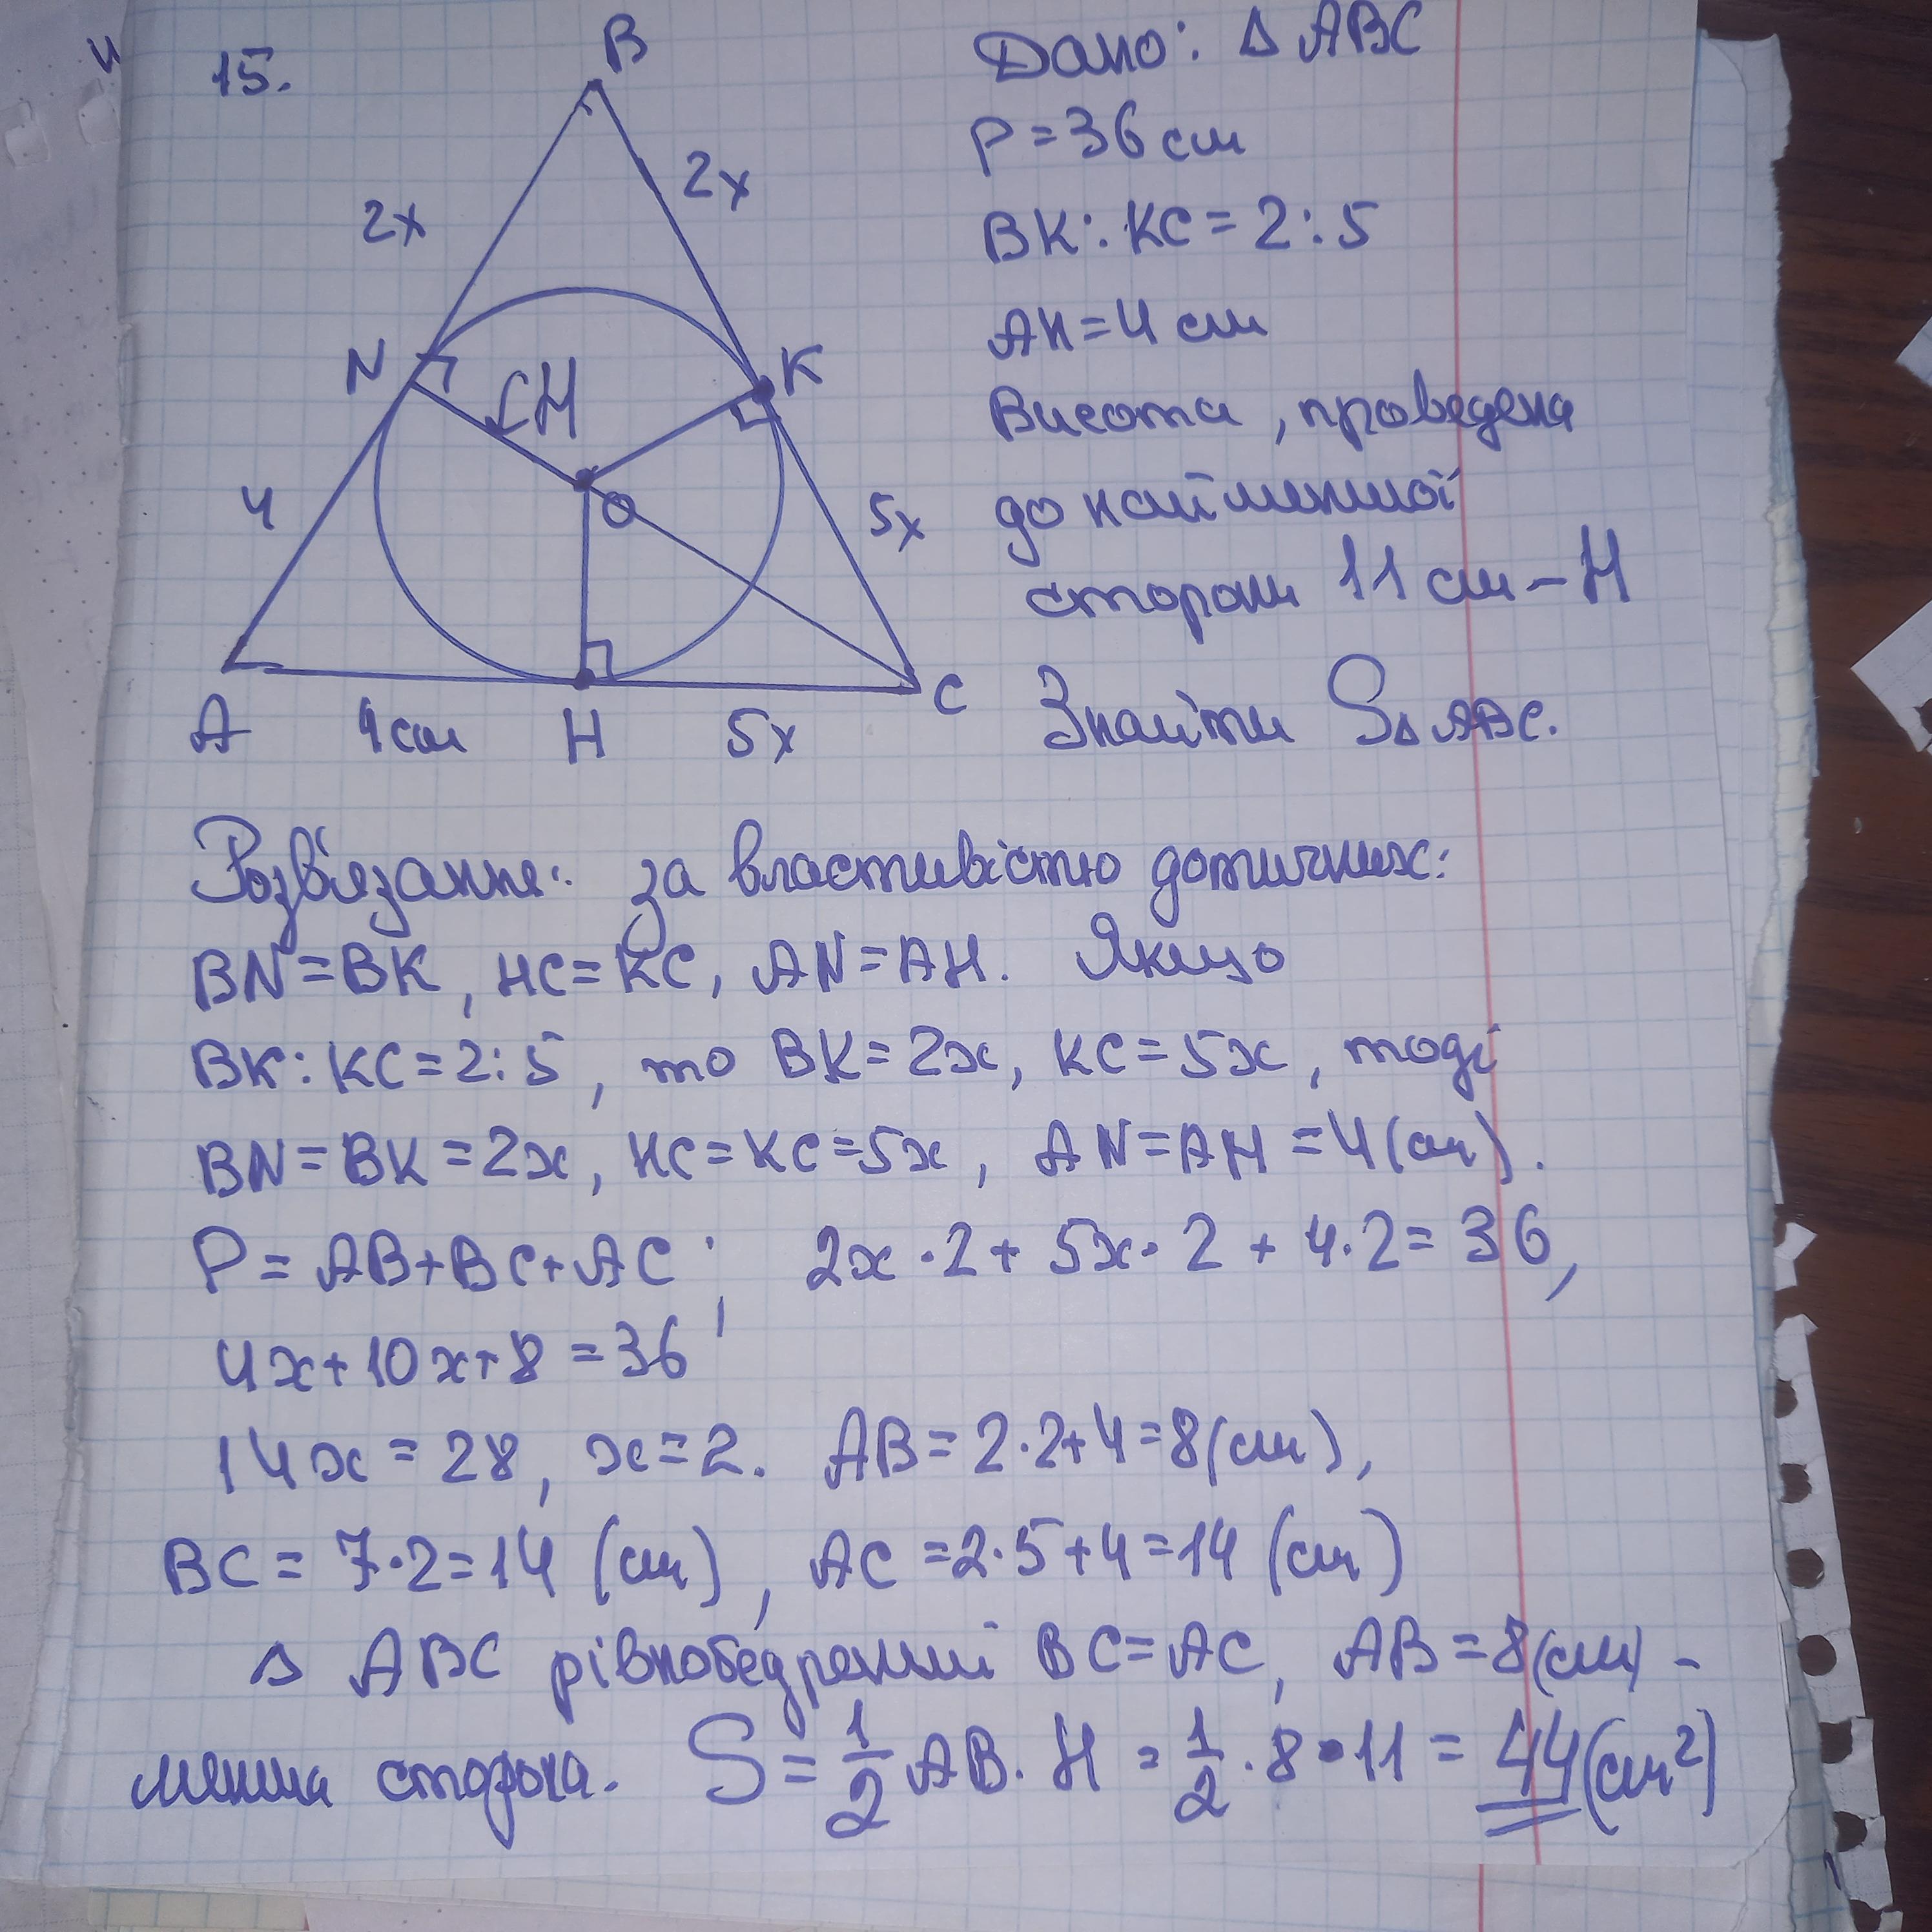 15.
B
2x
2x
N
H
K
O
4
5x
A
4см
H
5x
C
Дано: Δ ABC
P = 36 см
BK : KC = 2 : 5
AH = 4 см
Висота, проведена
до найменшої
сторони 11 см – H
Знайти SΔ ABC.
Розв'язання: за властивістю дотичних:
BN = BK, HC = KC, AN = AH. Якщо
BK : KC = 2 : 5, то BK = 2x, KC = 5x, тоді
BN = BK = 2x, HC = KC = 5x, AN = AH = 4 (см).
P = AB + BC + AC ; 2x · 2 + 5x · 2 + 4 · 2 = 36,
4x + 10x + 8 = 36
14x = 28, x = 2. AB = 2 · 2 + 4 = 8 (см),
BC = 7 · 2 = 14 (см), AC = 2 · 5 + 4 = 14 (см)
Δ ABC рівнобедренний BC = AC, AB = 8 (см) –
менша сторона. S = 1/2 AB · H = 1/2 · 8 · 11 = 44 (см²)